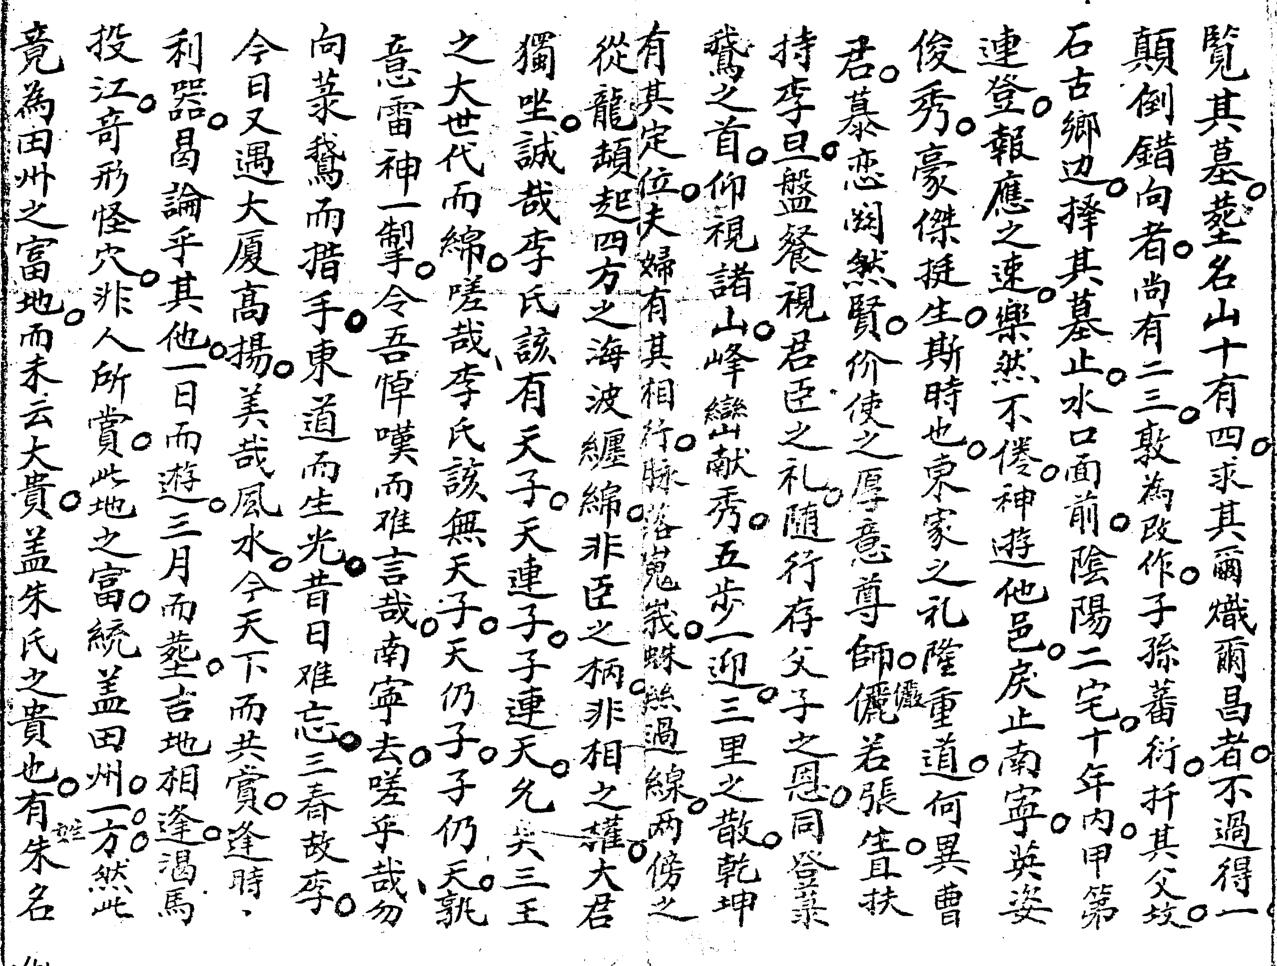 覧其墓塟名山十有四求其爾熾爾昌者不過得一
顛倒錯向者尚有二三敦為改作子孫蕃衍扦其父坟
石古鄉边擇其墓止水口面前陰陽二宅十年内甲第
連登報應之速樂然不倦神遊他邑戻止南寧英姿
俊秀豪傑挺生斯時也東家之礼隆重道何異曹
君慕恋闕然賢价使之厚意尊師儷儼若張笡扶
持李旦盤餐視君臣之礼随行存父子之恩同登菉
鵞之首仰視諸山峰巒献秀五步一迎三里之散乾坤
有其定位夫婦有其相行脉落嵬峩蛛絲過線两傍之
從龍頡起四方之海波纒綿非臣之柄非相之權大君
獨坐誠哉李氏該有天子天連子子連天允矣三王
之大世代而綿嗟哉李氏該無天子天仍子子仍天孰
意雷神一掣令吾悼嘆而难言哉南寧去嗟乎哉勿
向菉鵞而措手東道而生光昔日难忘三春故李
今日又遇大厦高揚美哉風水今天下而共賞逢時
利器曷論乎其他一日而遊三月而塟吉地相逢渴馬
投江奇形怪穴非人所賞此地之富統盖田州一方然此
竟為田州之富地而未云大貴盖朱氏之貴也有朱名